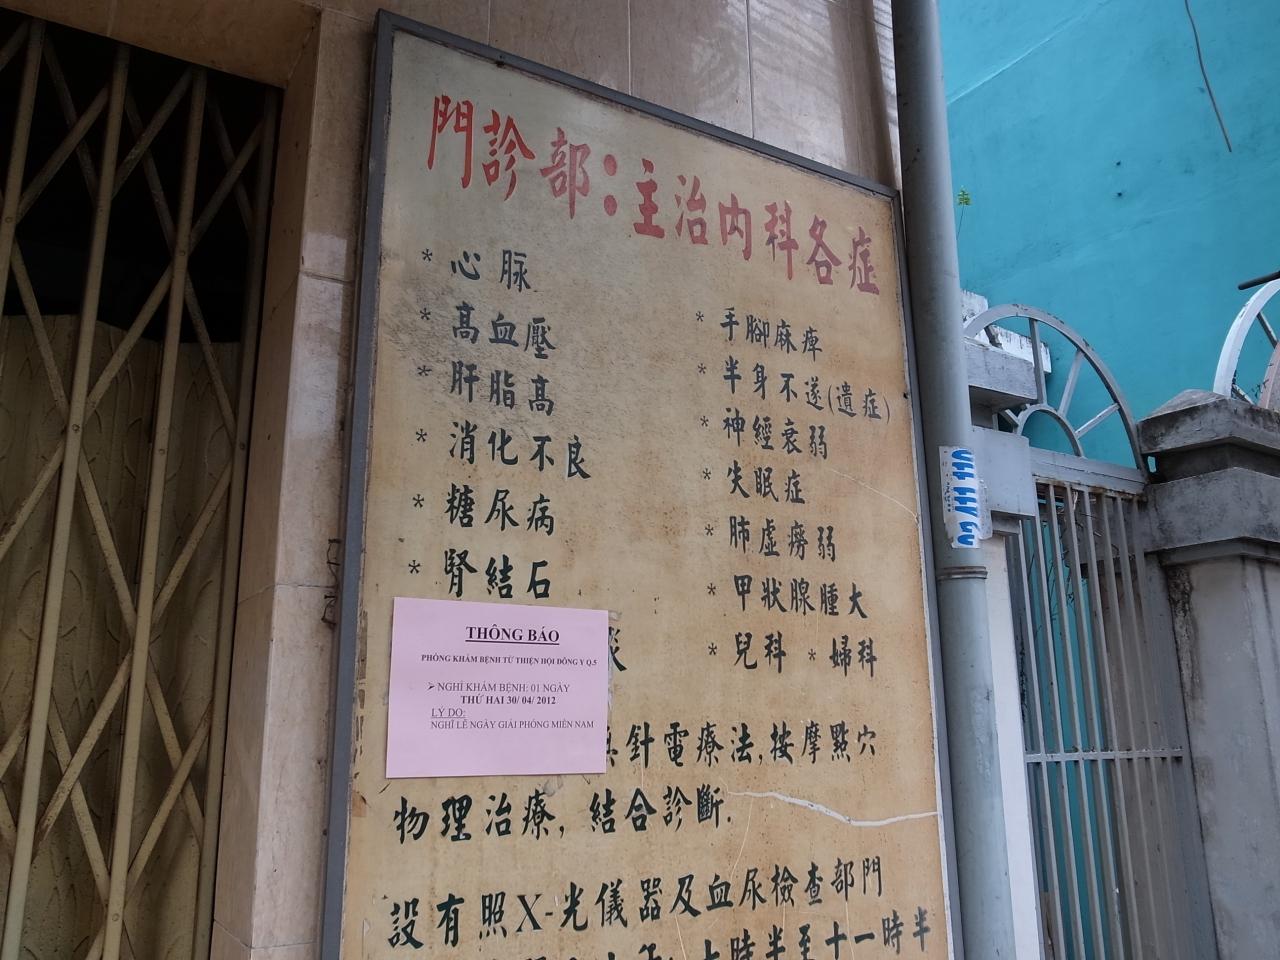 門診部:主治內科各症
* 心脈
* 高血壓
* 肝脂高
* 消化不良
* 糖尿病
* 腎結石
炎
* 手腳麻痺
* 半身不遂(遺症)
* 神經衰弱
* 失眠症
* 肺虛癆弱
* 甲狀腺腫大
* 兒科 * 婦科
THÔNG BÁO
PHÒNG KHÁM BỆNH TỪ THIỆN HỘI ĐÔNG Y Q.5
➢ NGHỈ KHÁM BỆNH: 01 NGÀY
THỨ HAI 30/ 04/ 2012
LÝ DO:
NGHĨ LỄ NGÀY GIẢI PHÓNG MIỀN NAM
針電療法,按摩點穴
物理治療,結合診斷.
設有照X-光儀器及血尿檢查部門
七時半至十一時半